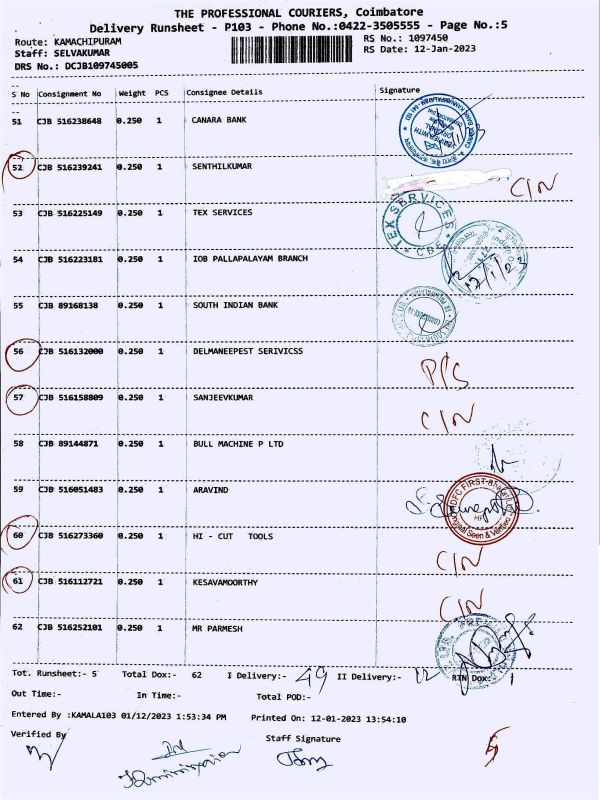 THE PROFESSIONAL COURIERS, Coimbatore
Delivery Runsheet - P103 - Phone No.:0422-3505555 - Page No.:5
Route: KAMACHIPURAM
RS No.: 1097450
Staff: SELVAKUMAR
RS Date: 12-Jan-2023
DRS No.: DCJB109745005
S No Consignment No Weight PCS Consignee Details Signature
51 CJB 516238648 0.250 1 CANARA BANK
52 CJB 516239241 0.250 1 SENTHILKUMAR C/N
53 CJB 516225149 0.250 1 TEX SERVICES
TEX SERVICES
CBE
54 CJB 516223181 0.250 1 IOB PALLAPALAYAM BRANCH
12/1/23
55 CJB 89168138 0.250 1 SOUTH INDIAN BANK
56 CJB 516132000 0.250 1 DELMANEEPEST SERIVICSS P/S
57 CJB 516158809 0.250 1 SANJEEVKUMAR C/N
58 CJB 89144871 0.250 1 BULL MACHINE P LTD
59 CJB 516051483 0.250 1 ARAVIND
60 CJB 516273360 0.250 1 HI - CUT TOOLS C/N
61 CJB 516112721 0.250 1 KESAVAMOORTHY C/N
62 CJB 516252101 0.250 1 MR PARMESH
Tot. Runsheet:- 5 Total Dox:- 62 I Delivery:- 49 II Delivery:- 12 RTN Dox: 1
Out Time:- In Time:- Total POD:-
Entered By :KAMALA103 01/12/2023 1:53:34 PM Printed On: 12-01-2023 13:54:10
Verified By Staff Signature
5